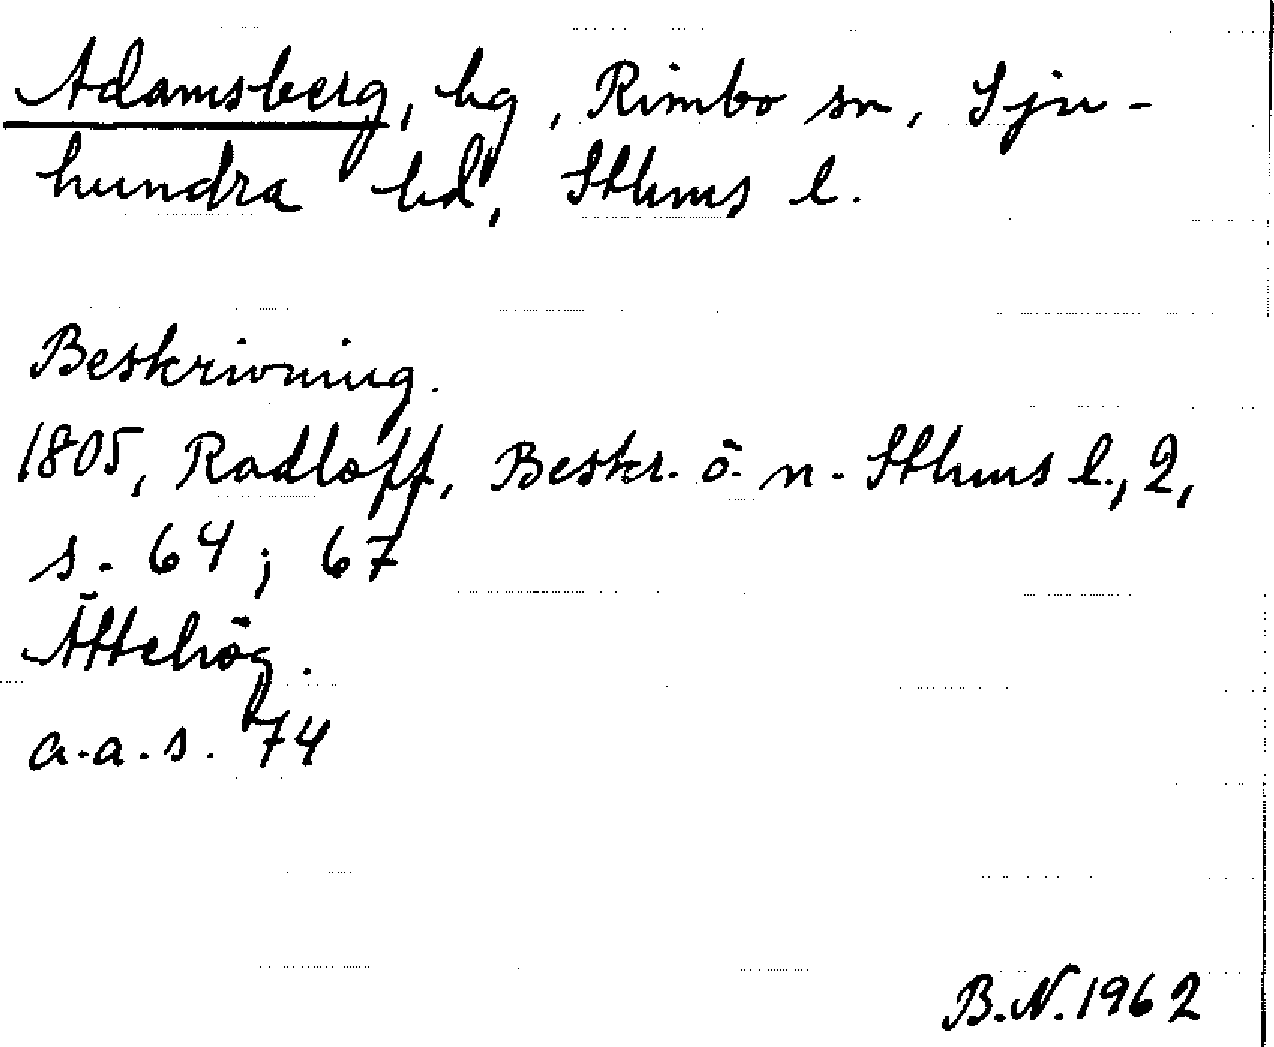 Adamsberg, hg, Rimbo sn, Sju-
hundra hd, Sthms l.
Beskrivning.
1805, Radloff, Beskr. ö. n. Sthms l., 2,
s. 64; 67
Ättehög.
a.a.s. 74
B.N. 1962